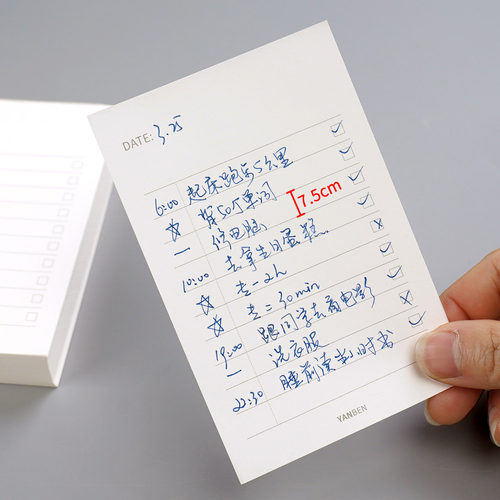 DATE: 3.25
6:00 起床跑步5公里
背50个单词
7.5cm
— 修电脑
10:00 去拿生日蛋糕
2h
30min
19:00 跟同学去看电影
— 洗衣服
22:30 睡前读半小时书
YANBEN